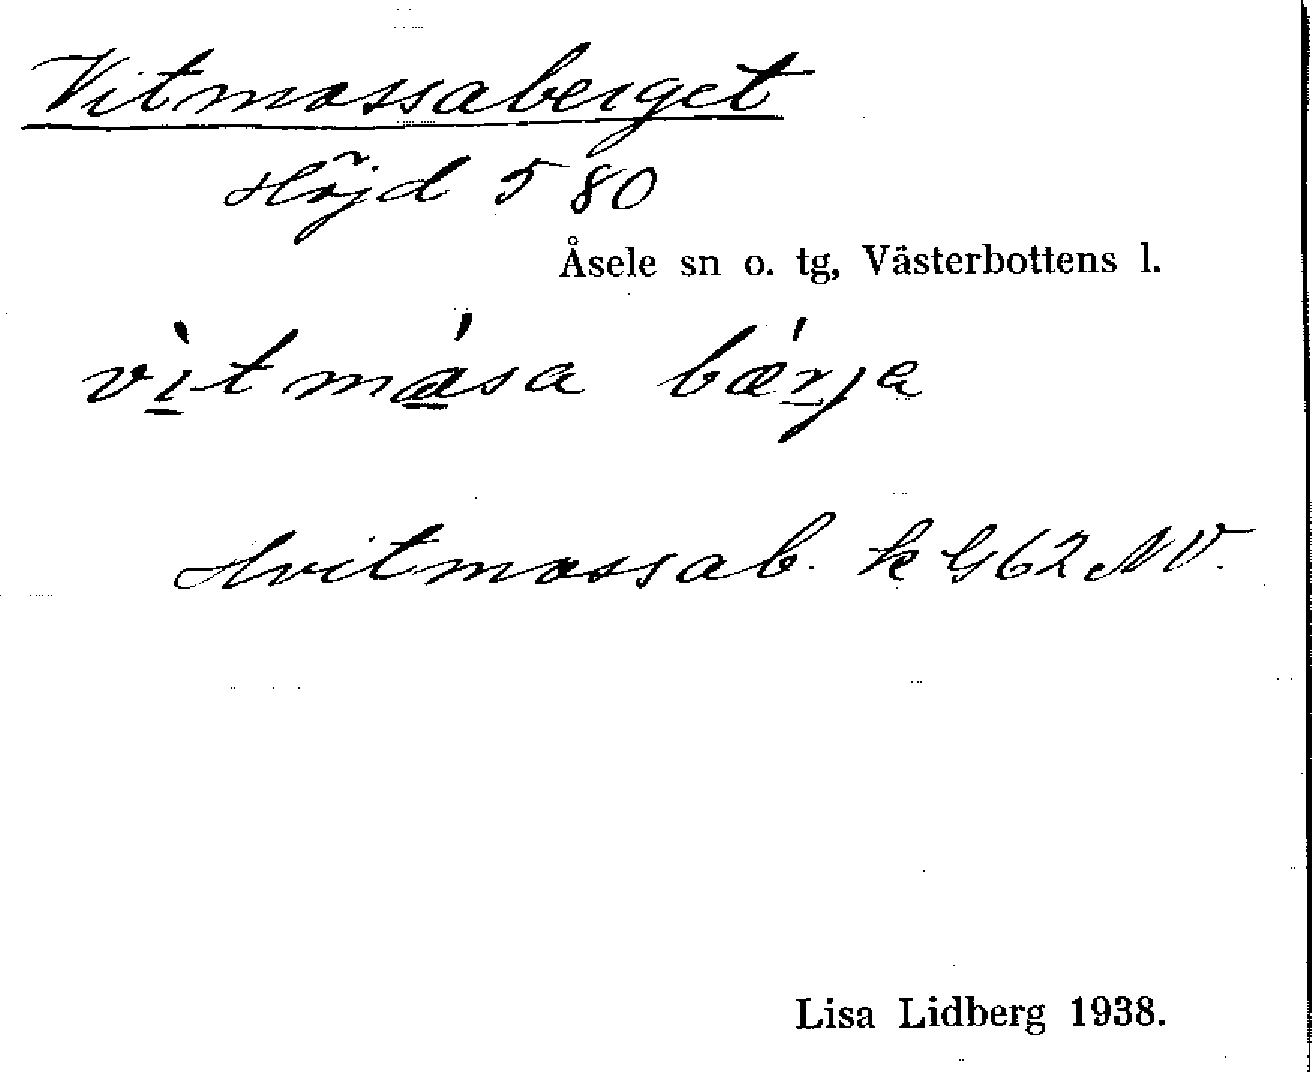 Vitmossaberget
Höjd 580
Åsele sn o. tg, Västerbottens l.
vìtmása bǽrja
Hvitmossab. k G62NV.
Lisa Lidberg 1938.